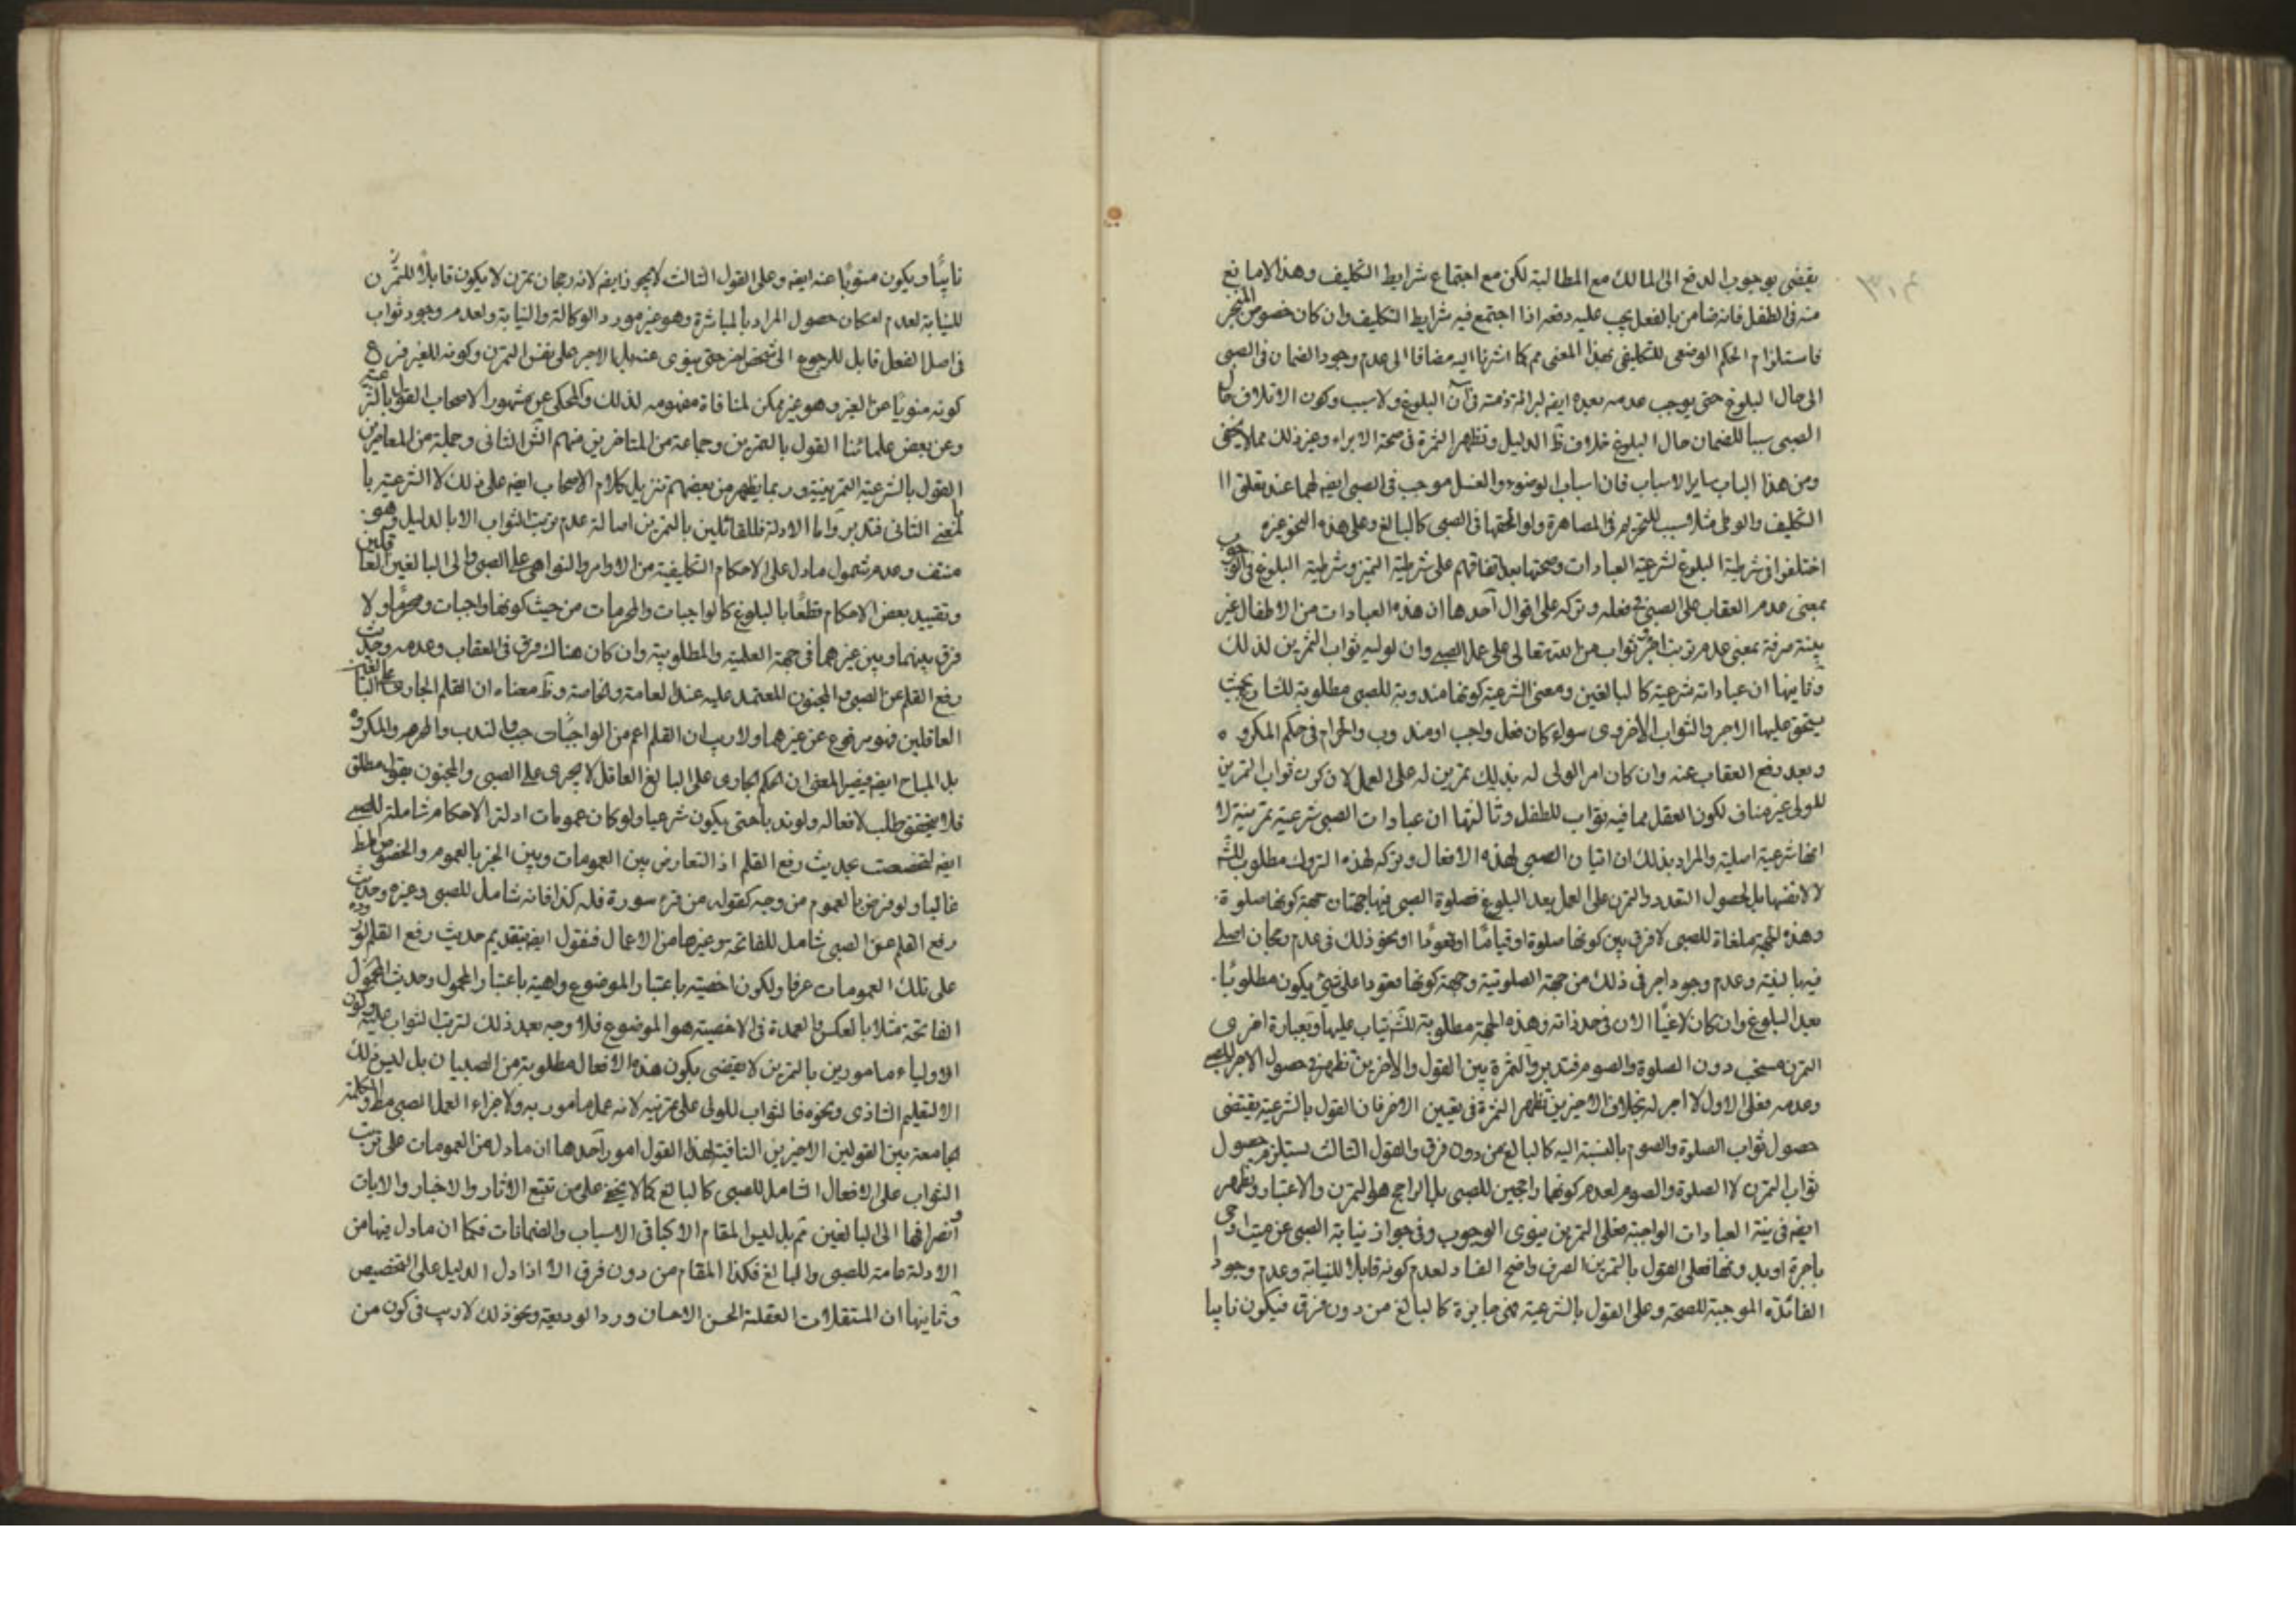 يقضى بوجوب الدفع الى المالك مع المطالبة لكن مع اجتماع شرايط التكليف وهذا لا مانع
منه فى الطفل فانه ضامن بالفعل يجب عليه دفعه اذا اجتمع فيه شرايط التكليف وان كان خصوص المنجز
فاستلزام الحكم الوضعى للتكليفى بهذا المعنى مم كما اشرنا اليه مضافا الى عدم وجود الضمان فى الصبى
الى حال البلوغ حتى يوجب عدمه بعده ايضه لبرائة ذمته فى آن البلوغ ولا سبب وكون الاتلاف حال
الصبى سببا للضمان حال البلوغ خلاف ظ الدليل وتظهر الثمرة فى صحة الابراء وغير ذلك مما لا يخفى
ومن هذا الباب ساير الاسباب فان اسباب الوضوء والغسل موجب فى الصبى ايضه لهما عند تعلق ا
التكليف والوطى مثلا سبب للتحريم فى المصاهرة ولواحقها فى الصبى كالبالغ وعلى هذا النحو غيره
اختلفوا فى شرطية البلوغ لشرعية العبادات وصحتها بعد اتفاقهم على شرطية التميز وشرطية البلوغ فى الوجوب
بمعنى عدم العقاب على الصبى فى فعله وتركه على اقوال آحدها ان هذه العبادات من الاطفال غير
صرفة بمعنى عدم ترتب اجر وثواب من الله تعالى على عمل الصبى وان لوليه ثواب التمرين لذلك
وثانيها ان عباداته شرعية كالبالغين ومعنى الشرعية كونها مندوبة للصبى مطلوبة للشارع بحيث
يستحق عليها الاجر والثواب الاخروى سواء كان فعل واجب او مندوب والحرام فى حكم المكروه
وبعد رفع العقاب عنه وان كان امر الولى له بذلك تمرين له على العمل لان كون ثواب التمرين
للولى غير مناف لكون العقل مما فيه ثواب للطفل وثالثها ان عبادات الصبى شرعية تمرينية لا
انها شرعية اصلية والمراد بذلك ان اتيان الصبى لهذه الافعال وتركه لهذه التروك مطلوب للش
لا لانفسها بل لحصول التعدد والتمرن على العمل بعد البلوغ فصلوة الصبى فيها جهتان جهة كونها صلوة
وهذه الجهة ملغاة للصبى لا فرق بين كونها صلوة او قياما او قعودا او نحو ذلك فى عدم رجحان اصلى
فيها لنفسه وعدم وجود اجر فى ذلك من جهة الصلوتية وجهة كونها معتودا على شىء يكون مطلوبا
بعد البلوغ وان كان لاغيا الان فى حد ذاته وهذه الجهة مطلوبة للش يثاب عليها وبعبارة اخرى
التمرن مستحب دون الصلوة والصوم فتدبر والثمرة بين القول والاخرين تظهر فى حصول الاجر للصبى
وعدمه فعلى الاول لا اجر له بخلاف الاخيرين وتظهر الثمرة فى تعيين الاخر فان القول بالشرعية يقتضى
حصول ثواب الصلوة والصوم بالنسبة اليه كالبالغ من دون فرق والقول الثالث يستلزم حصول
ثواب التمرن لا الصلوة والصوم لعدم كونهما راجحين للصبى بل الراجح هو التمرن والاعتبار وتظهر
ايضه فى نية العبادات الواجبة فعلى التمرين ينوى الوجوب وفى جواز نيابة الصبى عن ميت او حى
باجرة او بدونها فعلى القول بالتمرين الصرف واضح الفساد لعدم كونه قابلا للنيابة وعدم وجود
الفائدة الموجبة للصحة وعلى القول بالشرعية فهى جايزة كالبالغ من دون فرق فيكون نايبا
نايبا ويكون منويا عنه ايضه وعلى القول الثالث لا يجوز ايضه لانه رجحان تمرن لا يكون قابلا للتمرن
للنيابة لعدم امكان حصول المراد بالمباشرة وهو غير مورد الوكالة والنيابة ولعدم وجود ثواب
فى اصل الفعل قابل للرجوع الى شخص اخر حتى ينوى عنه بل الاجر على نفس التمرن وكونه للغير فرع
كونه منويا عن الغير وهو غير ممكن لمنافاة مفهومه لذلك والمحكى عن مشهور الاصحاب القول بالشرعية
وعن بعض علمائنا القول بالتمرين وجماعة من المتاخرين منهم الش الثانى وجملة من المعاصرين
القول بالشرعية التمرينية وربما يظهر من بعضهم تنزيل كلام الاصحاب ايضه على ذلك لا الشرعية با
لمعنى الثانى فتدبر واما الادلة فللقائلين بالتمرين اصالة عدم ترتب الثواب الا بالدليل وهو
منتف وعدم شمول ما دل على الاحكام التكليفية من الاوامر والنواهى على الصبى والى البالغين العاقلين
وتقييد بعض الاحكام قطعا بالبلوغ كالواجبات والمحرمات من حيث كونها واجبات ومحرما ولا
فرق بينهما وبين غيرهما فى جهة العلية والمطلوبية وان كان هناك فرق فى العقاب وعدمه وحديث
رفع القلم عن الصبى والمجنون المعتمد عليه عند العامة والخاصة وظ معناه ان القلم الجارى على البالغين
العاقلين فهو مرفوع عن غيرهما ولا ريب ان القلم اعم من الواجبات والندب والحرم والمكروه
بل المباح ايضه فيصير المعنى ان الحكم الجارى على البالغ العاقل لا يجرى على الصبى والمجنون بقول مطلق
فلا يتحقق طلب لافعاله ولو ندبا حتى يكون شرعيا ولو كان عمومات ادلة الاحكام شاملة للصبى
ايضه لتخصصت بحديث رفع القلم اذ التعارض بين العمومات وبين الخبر بالعموم والخصوص مط
غالبا ولو فرض بالعموم من وجه كقوله من قرء سورة فله كذا فانه شامل للصبى وغيره وحديث
رفع القلم عن الصبى شامل للفاتحة وغيرها من الاعمال فنقول ايضه بتقديم حديث رفع القلم لوروده
على تلك العمومات عرفا ولكون اخصيته باعتبار الموضوع واهيته باعتبار المحمول وحديث
الفاتحة مثلا بالعكس والعمدة فى الاخصية هو الموضوع فلا وجه بعد ذلك لترتب الثواب عليه وكون
الاولياء مامورين بالتمرين لا يقتضى بكون هذه الافعال مطلوبة من الصبيان بل ليس ذلك
الا لتعليم التاذى ونحوه فالثواب للولى على تمرينه لانه عمل مامور به ولا جزاء لعمل الصبى مط والكلمة
الجامعة بين القولين الاخيرين النافية لهذا القول امور آحدها ان ما دل من العمومات على ترتب
الثواب على الافعال الشامل للصبى كالبالغ كما لا يخفى على من تتبع الاثار والاخبار والايات
وانصرافها الى البالغين مم بل ليس المقام الا كباقى الاسباب والضمانات فكما ان ما دل فيها من
الادلة عامة للصبى والبالغ فكذا المقام من دون فرق الا اذا دل الدليل على التخصيص
وثانيها ان المستقلات العقلية الحسن الاحسان ورد الوديعة ونحو ذلك لا ريب فى كون من